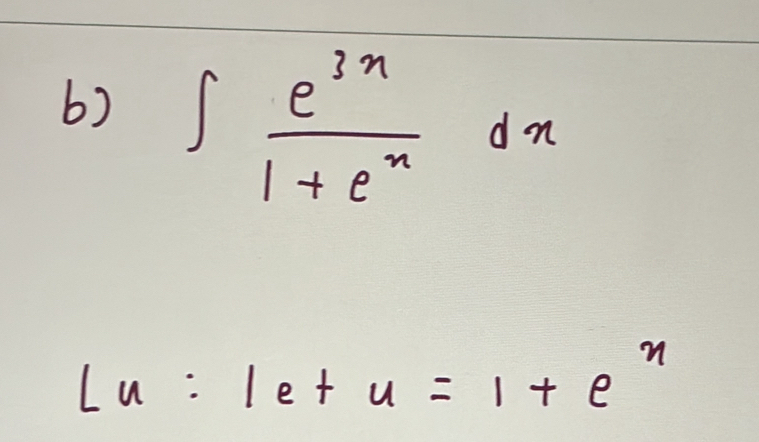 b) ∫ e^{3x} / (1 + e^{x}) dx
[u : let u = 1 + e^{x}